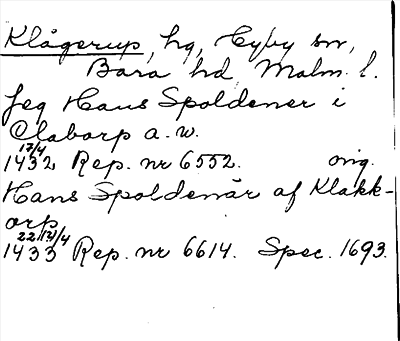 Klågerup, hg, Hyby sn,
Bara hd, Malm. l.
Jeg Hans Spoldener i
Claborp a. w.
17/4
1432 Rep. nr 6552. orig.
Hans Spoldenär af Klakk-
orp
22/12/4
1433 Rep. nr 6614. Spec. 1693.